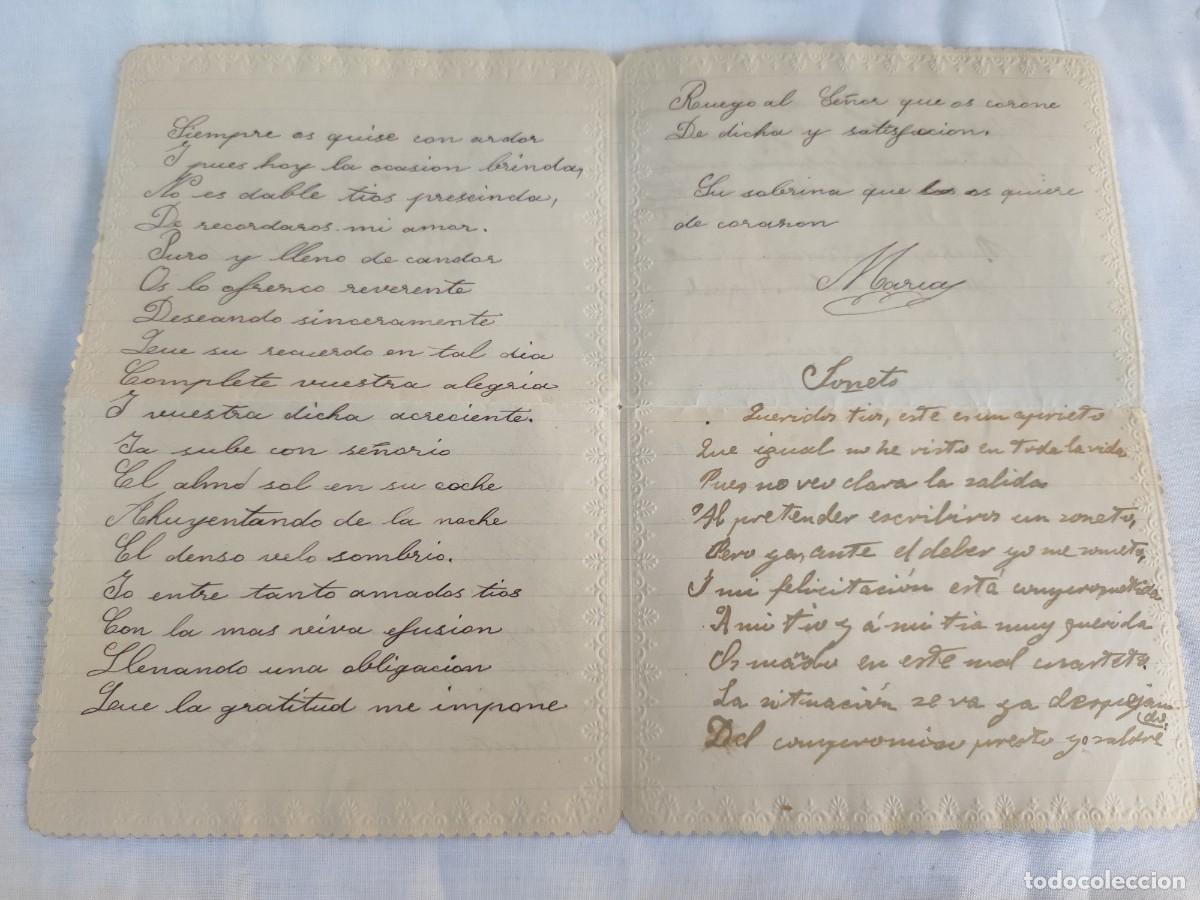 Siempre os quise con ardor
I pues hoy la ocasion brinda,
No es dable tios prescinda,
De recordaros mi amor.
Puro y lleno de candor
Os lo ofrenco reverente
Deseando sinceramente
Que su recuerdo en tal dia
Complete vuestra alegria
I vuestra dicha acreciente.
Ya sube con señorio
El almó sol en su coche
Ahuyentando de la noche
El denso velo sombrio.
Yo entre tanto amados tios
Con la mas viva efusion
Llenando una obligacion
Que la gratitud me impone
Ruego al Señor que os corone
De dicha y satisfacion.
Su sobrina que os quiere
de corazon
Maria
Soneto
Queridos tios, este es un aprieto
Que igual no he visto en toda la vida
Pues no veo clara la salida
Al pretender escribiros un soneto,
Pero ya, ante el deber yo me someto,
I mi felicitación está comprometida
A mi tio y á mi tia muy querida
Os mando en este mal cuarteto.
La situación se va ya despejando.
Del compromiso presto yo saldré
todocoleccion